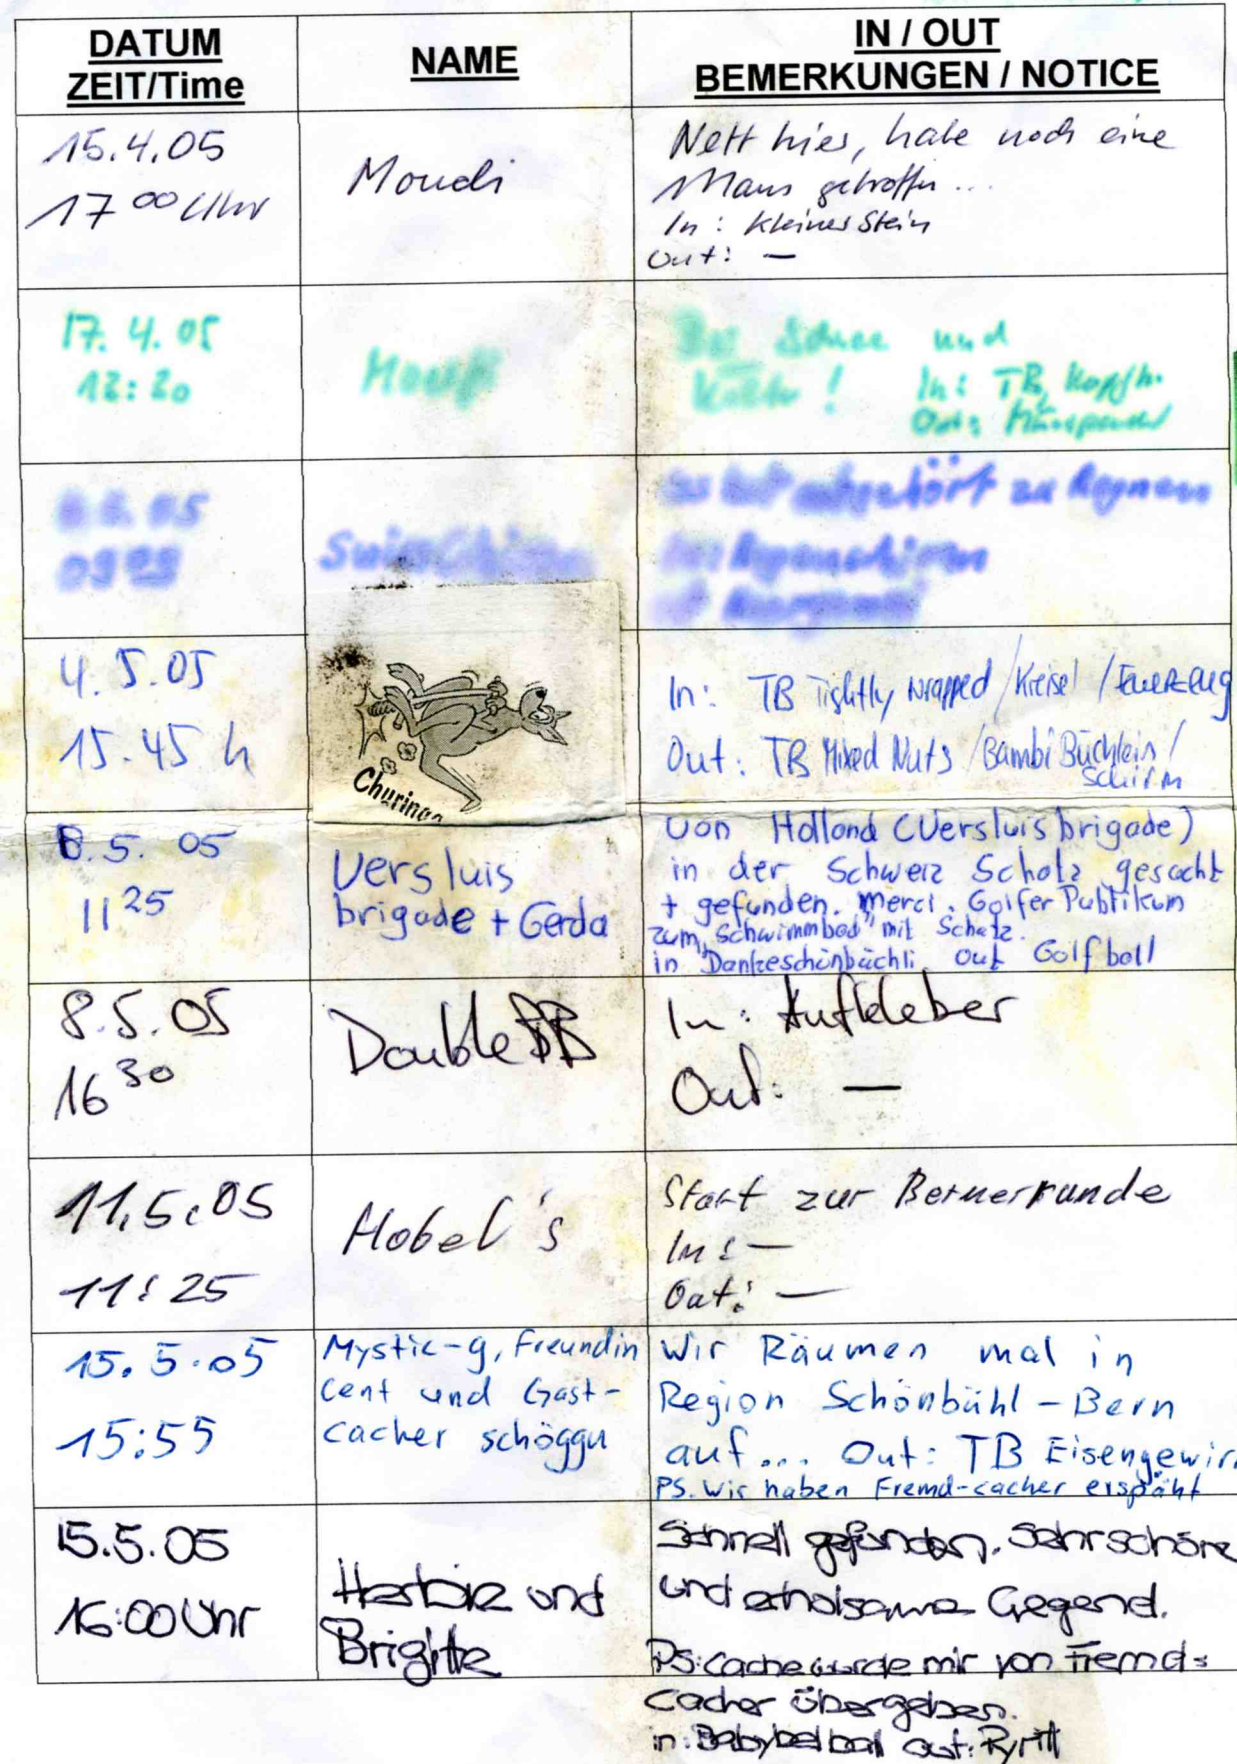 DATUM
ZEIT/Time
NAME
IN / OUT
BEMERKUNGEN / NOTICE
15.4.05
17 00 Uhr
Moudi
Nett hier, habe noch eine
Maus getroffen...
In: kleiner Stein
Out: —
17. 4. 05
12:20
und
! In: TB,
Out:
05
aufgehört zu Regnen
4.5.05
15.45 h
Churinga
In: TB Tightly wrapped / Kreisel / Feuerzeug
Out: TB Mixed Nuts / Bambi Büchlein /
Schirm
8.5. 05
11 25
Versluis
brigade + Gerda
Von Holland (Versluis brigade)
in der Schweiz Schatz gesocht
+ gefunden. merci. Golfer Publikum
zum „Schwimmbad" mit Schatz.
in Dankeschönbüchli out Golfball
8.5.05
16 30
Double BB
In: Aufkleber
Out: —
11.5.05
11:25
Hobel's
Start zur Bernerrunde
In: —
Out: —
15.5.05
15:55
Mystic-g, Freundin
Cent und Gast-
cacher schöggu
Wir Räumen mal in
Region Schönbühl - Bern
auf... Out: TB Eisengewirr
PS. Wir haben Fremd-cacher erspäht
15.5.05
16:00 Uhr
Herbie und
Brigitte
Schnell gefunden. Sehr schöne
und erholsame Gegend.
PS: Cache wurde mir von Fremd-
cacher übergeben.
in: Babybel ball out: Pyritt